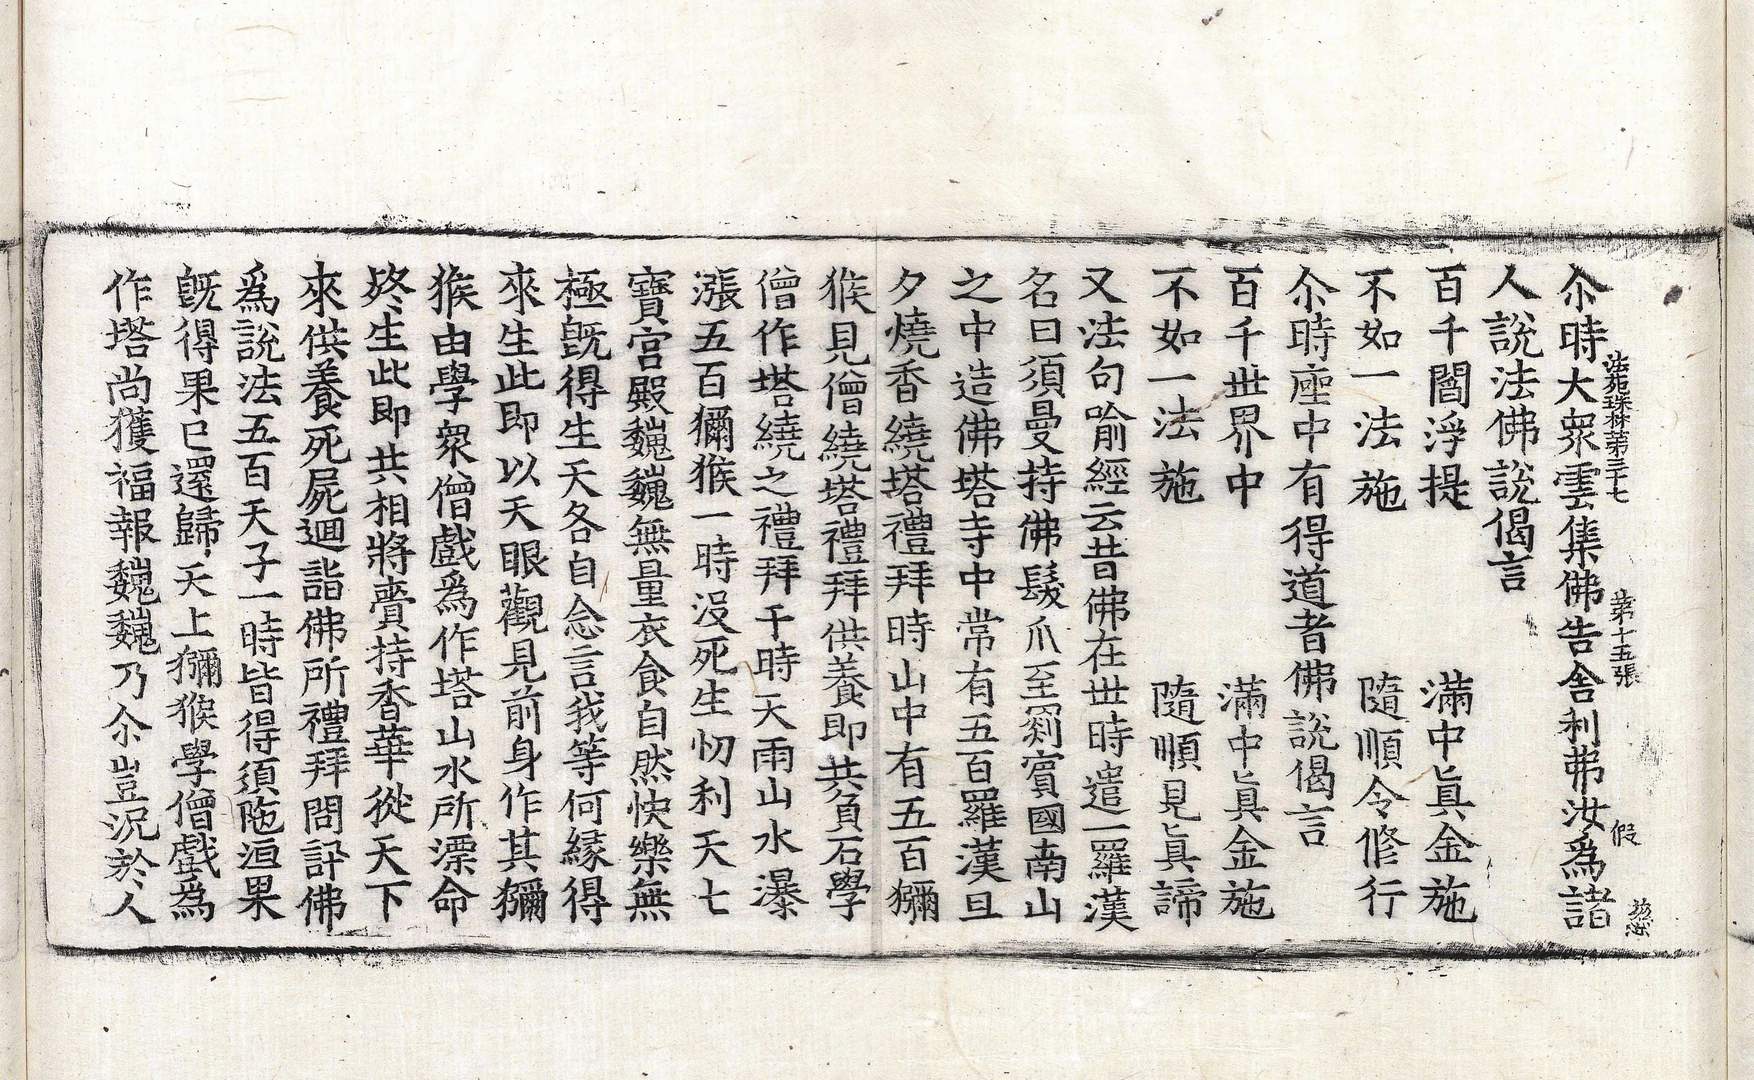 法苑珠林第三十七 第十五張 假
尒時大衆雲集佛告舍利弗汝爲諸
人說法佛說偈言
百千閻浮提 滿中眞金施
不如一法施 隨順令修行
尒時座中有得道者佛說偈言
百千世界中 滿中眞金施
不如一法施 隨順見眞諦
又法句喻經云昔佛在世時遣一羅漢
名曰須曼持佛髮爪至罽賓國南山
之中造佛塔寺中常有五百羅漢旦
夕燒香繞塔禮拜時山中有五百獼
猴見僧繞塔禮拜供養即共負石學
僧作塔繞之禮拜于時天雨山水瀑
漲五百獼猴一時沒死生忉利天七
寶宮殿巍巍無量衣食自然快樂無
極旣得生天各自念言我等何緣得
來生此即以天眼觀見前身作其獼
猴由學衆僧戲爲作塔山水所漂命
終生此即共相將賷持香華從天下
來供養死屍迴詣佛所禮拜問訊佛
爲說法五百天子一時皆得須陁洹果
旣得果已還歸天上獼猴學僧戲為
作塔尚獲福報巍巍乃尒豈況於人